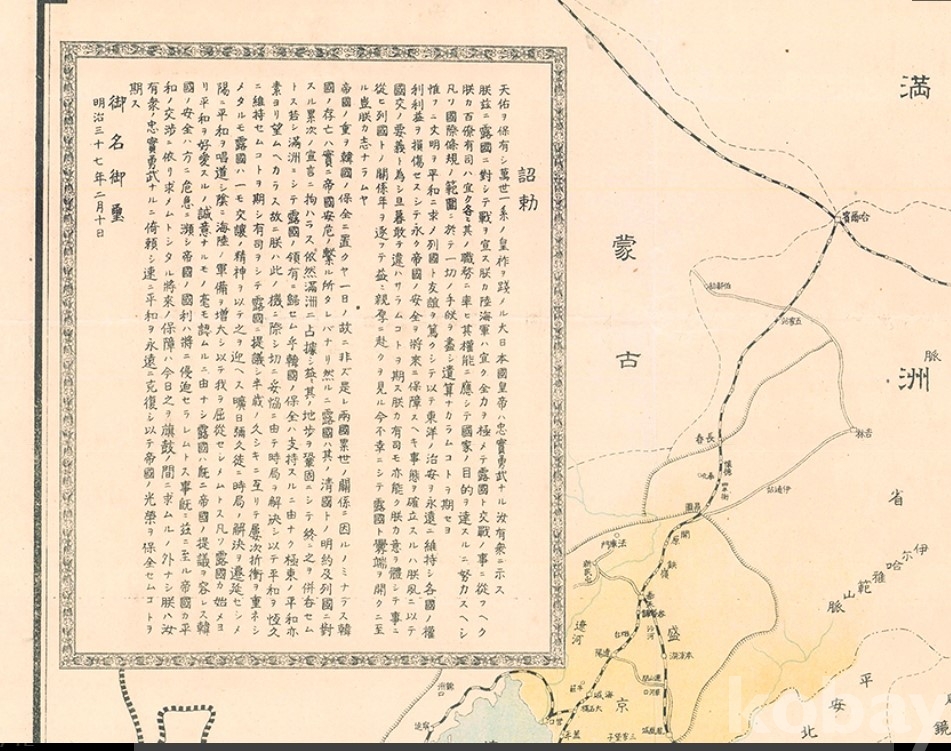 詔勅
天佑ヲ保有シ萬世一系ノ皇祚ヲ踐メル大日本國皇帝ハ忠實勇武ナル汝有衆ニ示ス
朕茲ニ露國ニ對シテ戰ヲ宣ス朕カ陸海軍ハ宜ク全力ヲ極メテ露國ト交戰ノ事ニ從フヘク
朕カ百僚有司ハ宜ク各々其ノ職務ニ率ヒ其權能ニ應シテ國家ノ目的ヲ達スルニ努力スヘシ
凡ソ國際條規ノ範圍ニ於テ一切ノ手段ヲ盡シ遺算ナカラムコトヲ期セヨ
惟フニ文明ヲ平和ニ求メ列國ト友誼ヲ篤クシテ以テ東洋ノ治安ヲ永遠ニ維持シ各國ノ權
利利益ヲ損傷セスシテ永ク帝國ノ安全ヲ將來ニ保障スヘキ事態ヲ確立スルハ朕夙ニ以テ
國交ノ要義ト為シ旦暮敢テ違ハサラムコトヲ期ス朕カ有司モ亦能ク朕カ意ヲ體シテ事ニ
從ヒ列國トノ關係年ヲ逐フテ益々親厚ニ赴クヲ見ル今不幸ニシテ露國ト釁端ヲ開クニ至
ル豈朕カ志ナラムヤ
帝國ノ重ヲ韓國ノ保全ニ置クヤ一日ノ故ニ非ス是レ兩國累世ノ關係ニ因ルノミナラス韓
國ノ存亡ハ實ニ帝國安危ノ繫ル所タレバナリ然ルニ露國ハ其ノ清國トノ明約及列國ニ對
スル累次ノ宣言ニ拘ハラス依然滿洲ニ占據シ益々其ノ地歩ヲ鞏固ニシテ終ニ之ヲ併呑セム
トス若シ滿洲ニシテ露國ノ領有ニ歸セム乎韓國ノ保全ハ支持スルニ由ナク極東ノ平和亦
素ヨリ望ムヘカラス故ニ朕ハ此ノ機ニ際シ切ニ妥協ニ由テ時局ヲ解決シ以テ平和ヲ恆久
ニ維持セムコトヲ期シ有司ヲシテ露國ニ提議シ半歳ノ久シキニ至リテ屢次折衝ヲ重ネシ
メタルモ露國ハ一モ交讓ノ精神ヲ以テ之ヲ迎ヘス曠日彌久徒ニ時局ノ解決ヲ遷延セシメ
陽ニ平和ヲ唱道シ陰ニ海陸ノ軍備ヲ増大シ以テ我ヲ屈從セシメムトス凡ソ露國カ始メヨ
リ平和ヲ好愛スルノ誠意ナルモノ毫モ認ムルニ由ナシ露國ハ既ニ帝國ノ提議ヲ容レス韓
國ノ安全ハ方ニ危急ニ瀕シ帝國ノ國利ハ將ニ侵迫セラレムトス事既ニ茲ニ至ル帝國カ平
和ノ交渉ニ依リ求メムトシタル將來ノ保障ハ今日之ヲ旗鼓ノ間ニ求ムルノ外ナシ朕ハ汝
有衆ノ忠實勇武ナルニ倚頼シ速ニ平和ヲ永遠ニ克復シ以テ帝國ノ光榮ヲ保全セムコトヲ
期ス
御名御璽
明治三十七年二月十日
滿洲
蒙古
哈爾賓
伯都訥
五家站
吉林
長春
伊通站
開原
法庫門
鐵嶺
盛京省
遼河
遼陽
牛莊
海城
営口
蓋平
錦州
鳳凰城
哈爾雅範山脈
平安北
kobay